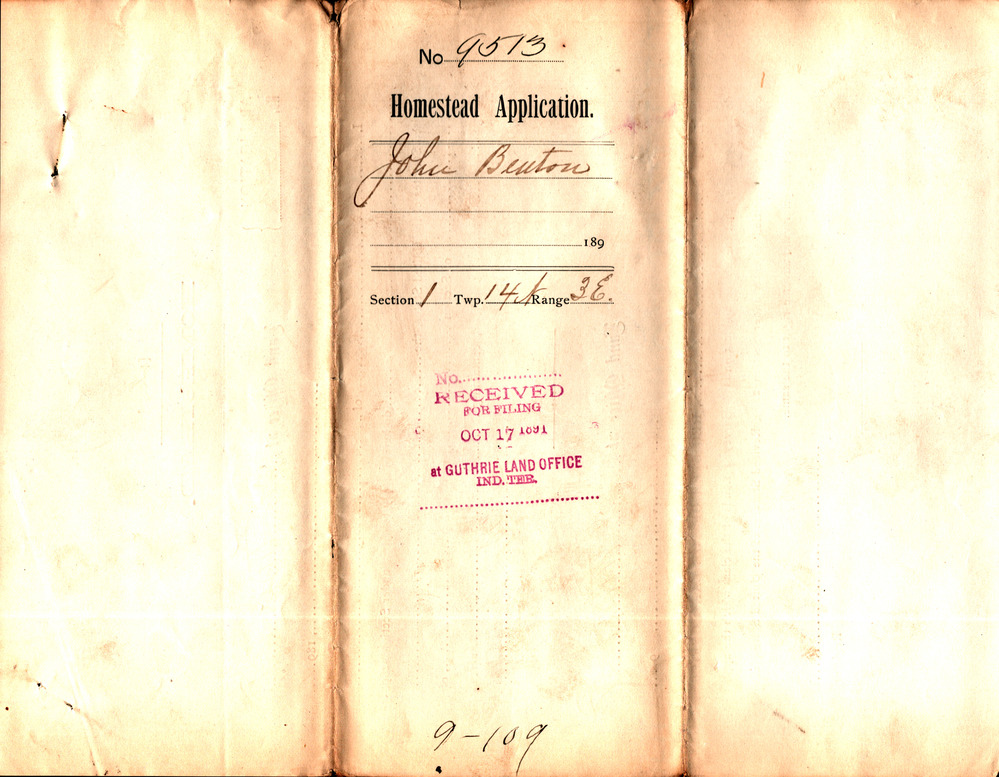 No. 9513
Homestead Application.
John Benton
189
Section 1 Twp. 14 N Range 3 E.
No.
RECEIVED
FOR FILING
OCT 17 1891
at GUTHRIE LAND OFFICE
IND. TER.
9-109